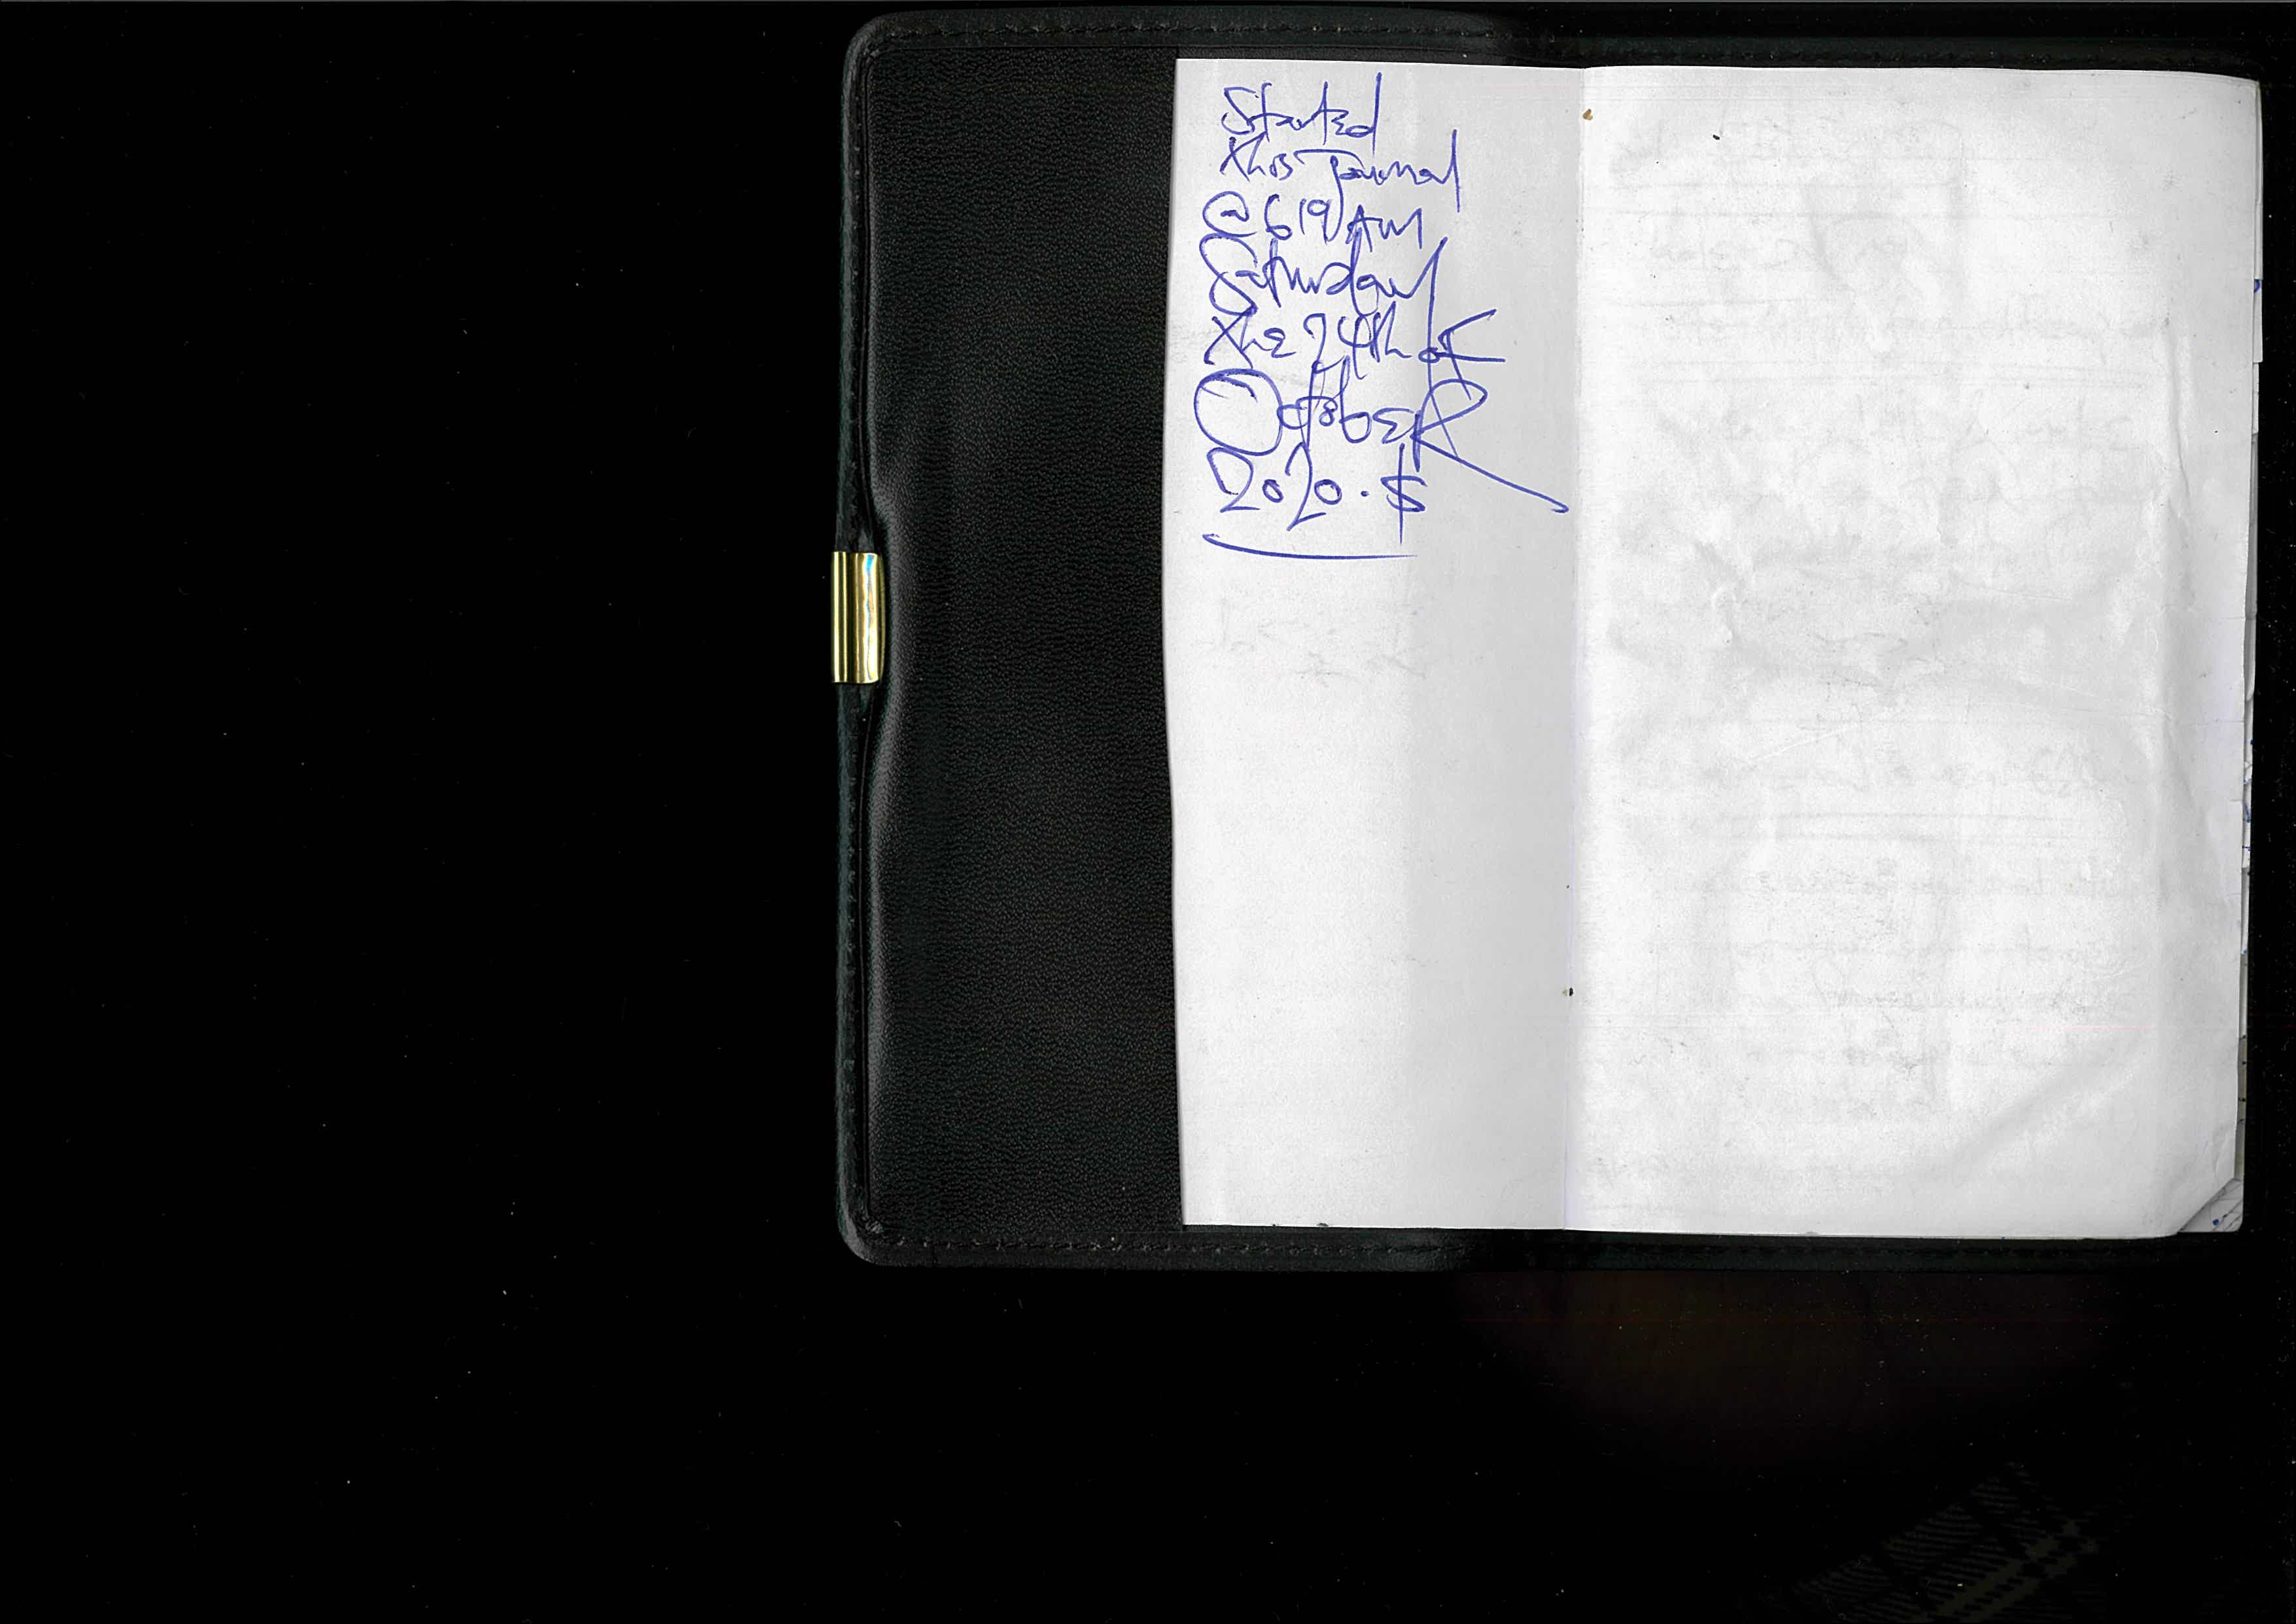 Started
Xhis Journal
@ 619 AM
Saturday
Xhe 24th oF
OctobeR
2020. $